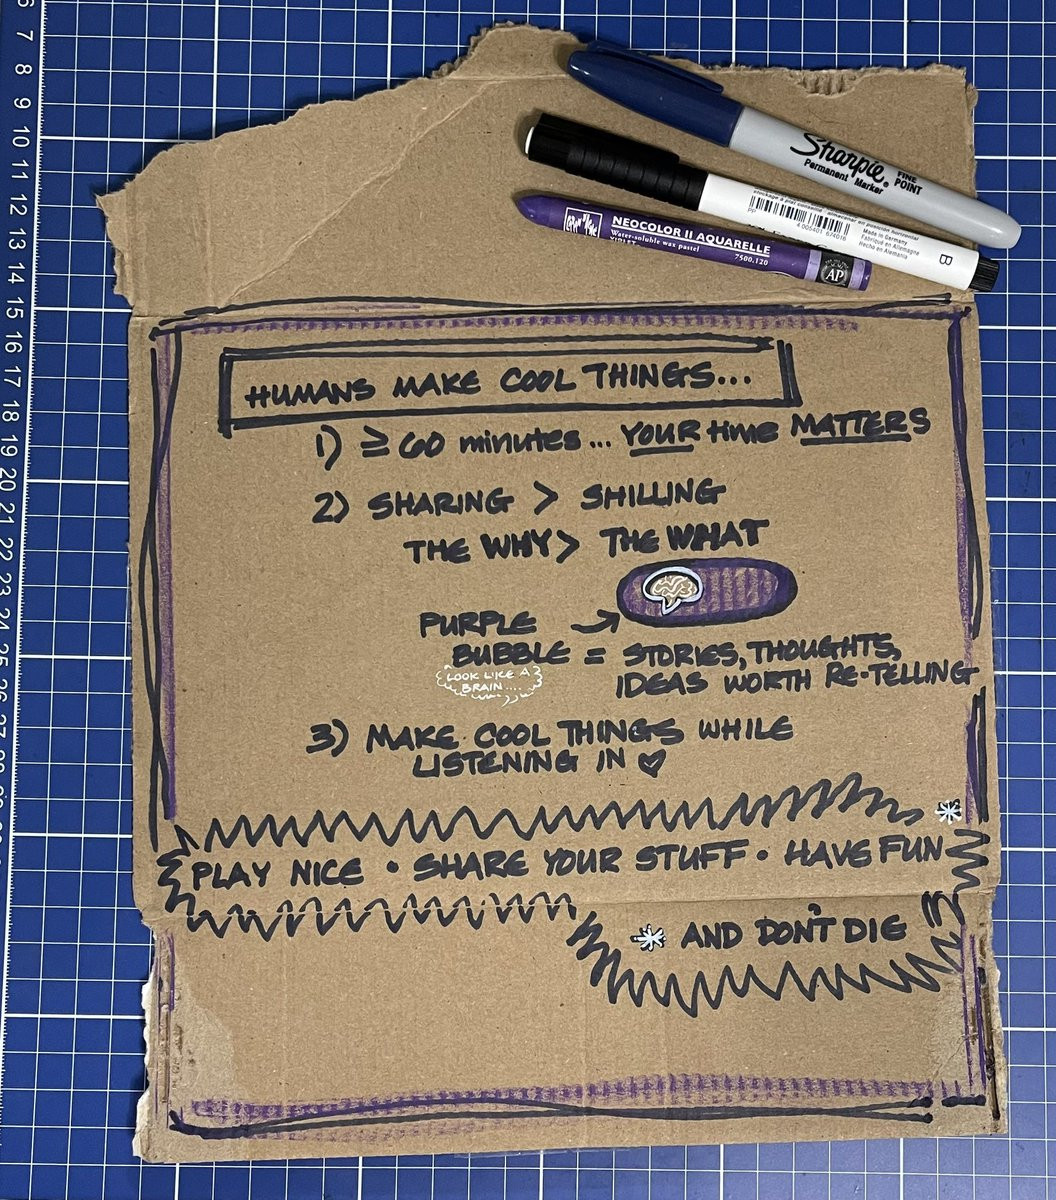 6
7
8
9
10
11
12
13
14
15
16
17
18
19
20
21
22
23
24
25
26
27
28
Sharpie®
Permanent Marker
FINE
POINT
4 005401 674016
Made in Germany
Fabriqué en Allemagne
Hecho en Alemania
B
NEOCOLOR II AQUARELLE
Water-soluble wax pastel
VIOLET
7500.120
AP
HUMANS MAKE COOL THINGS...
1) ≥ 60 minutes... YOUR time MATTERS
2) SHARING > SHILLING
THE WHY > THE WHAT
PURPLE →
BUBBLE = STORIES, THOUGHTS,
IDEAS WORTH RE-TELLING
(LOOK LIKE A
BRAIN....)
3) MAKE COOL THINGS WHILE
LISTENING IN ♡
*
PLAY NICE • SHARE YOUR STUFF • HAVE FUN
* AND DON'T DIE